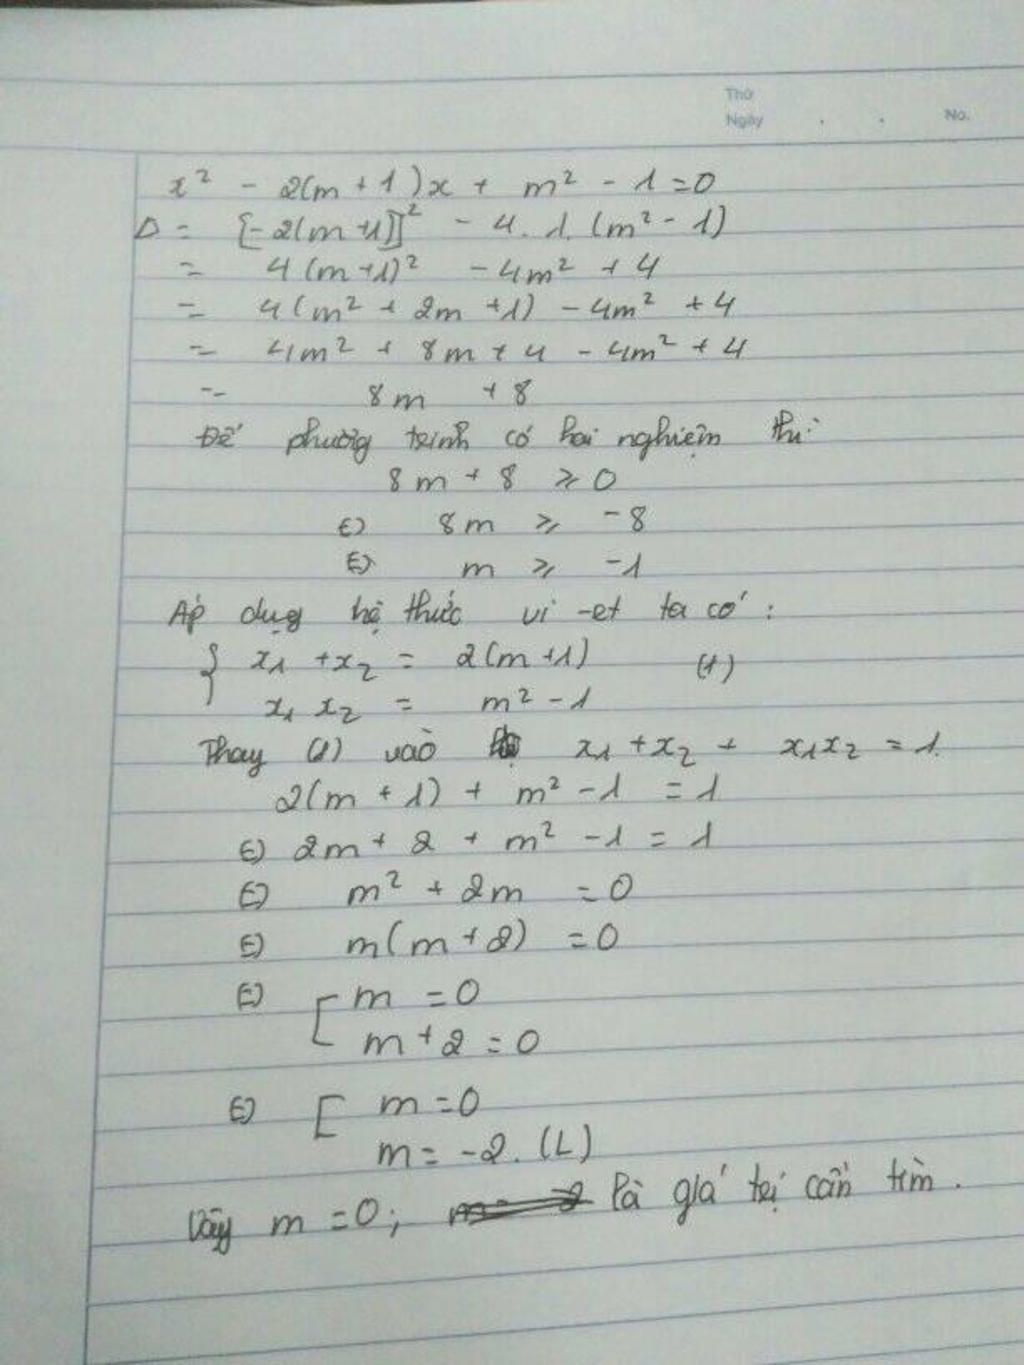 Thứ
Ngày . . No.
x² - 2(m + 1)x + m² - 1 = 0
Δ = [-2(m+1)]² - 4. 1. (m² - 1)
= 4(m+1)² - 4m² + 4
= 4(m² + 2m + 1) - 4m² + 4
= 4m² + 8m + 4 - 4m² + 4
= 8m + 8
Để phương trình có hai nghiệm thì:
8m + 8 ⩾ 0
⇔ 8m ⩾ -8
⇔ m ⩾ -1
Áp dụng hệ thức vi-et ta có:
{ x₁ + x₂ = 2(m+1) (1)
x₁ x₂ = m² - 1
Thay (1) vào x₁ + x₂ + x₁x₂ = 1.
2(m + 1) + m² - 1 = 1
⇔ 2m + 2 + m² - 1 = 1
⇔ m² + 2m = 0
⇔ m(m + 2) = 0
⇔ [ m = 0
m + 2 = 0
⇔ [ m = 0
m = -2. (L)
Vậy m = 0; là giá trị cần tìm.